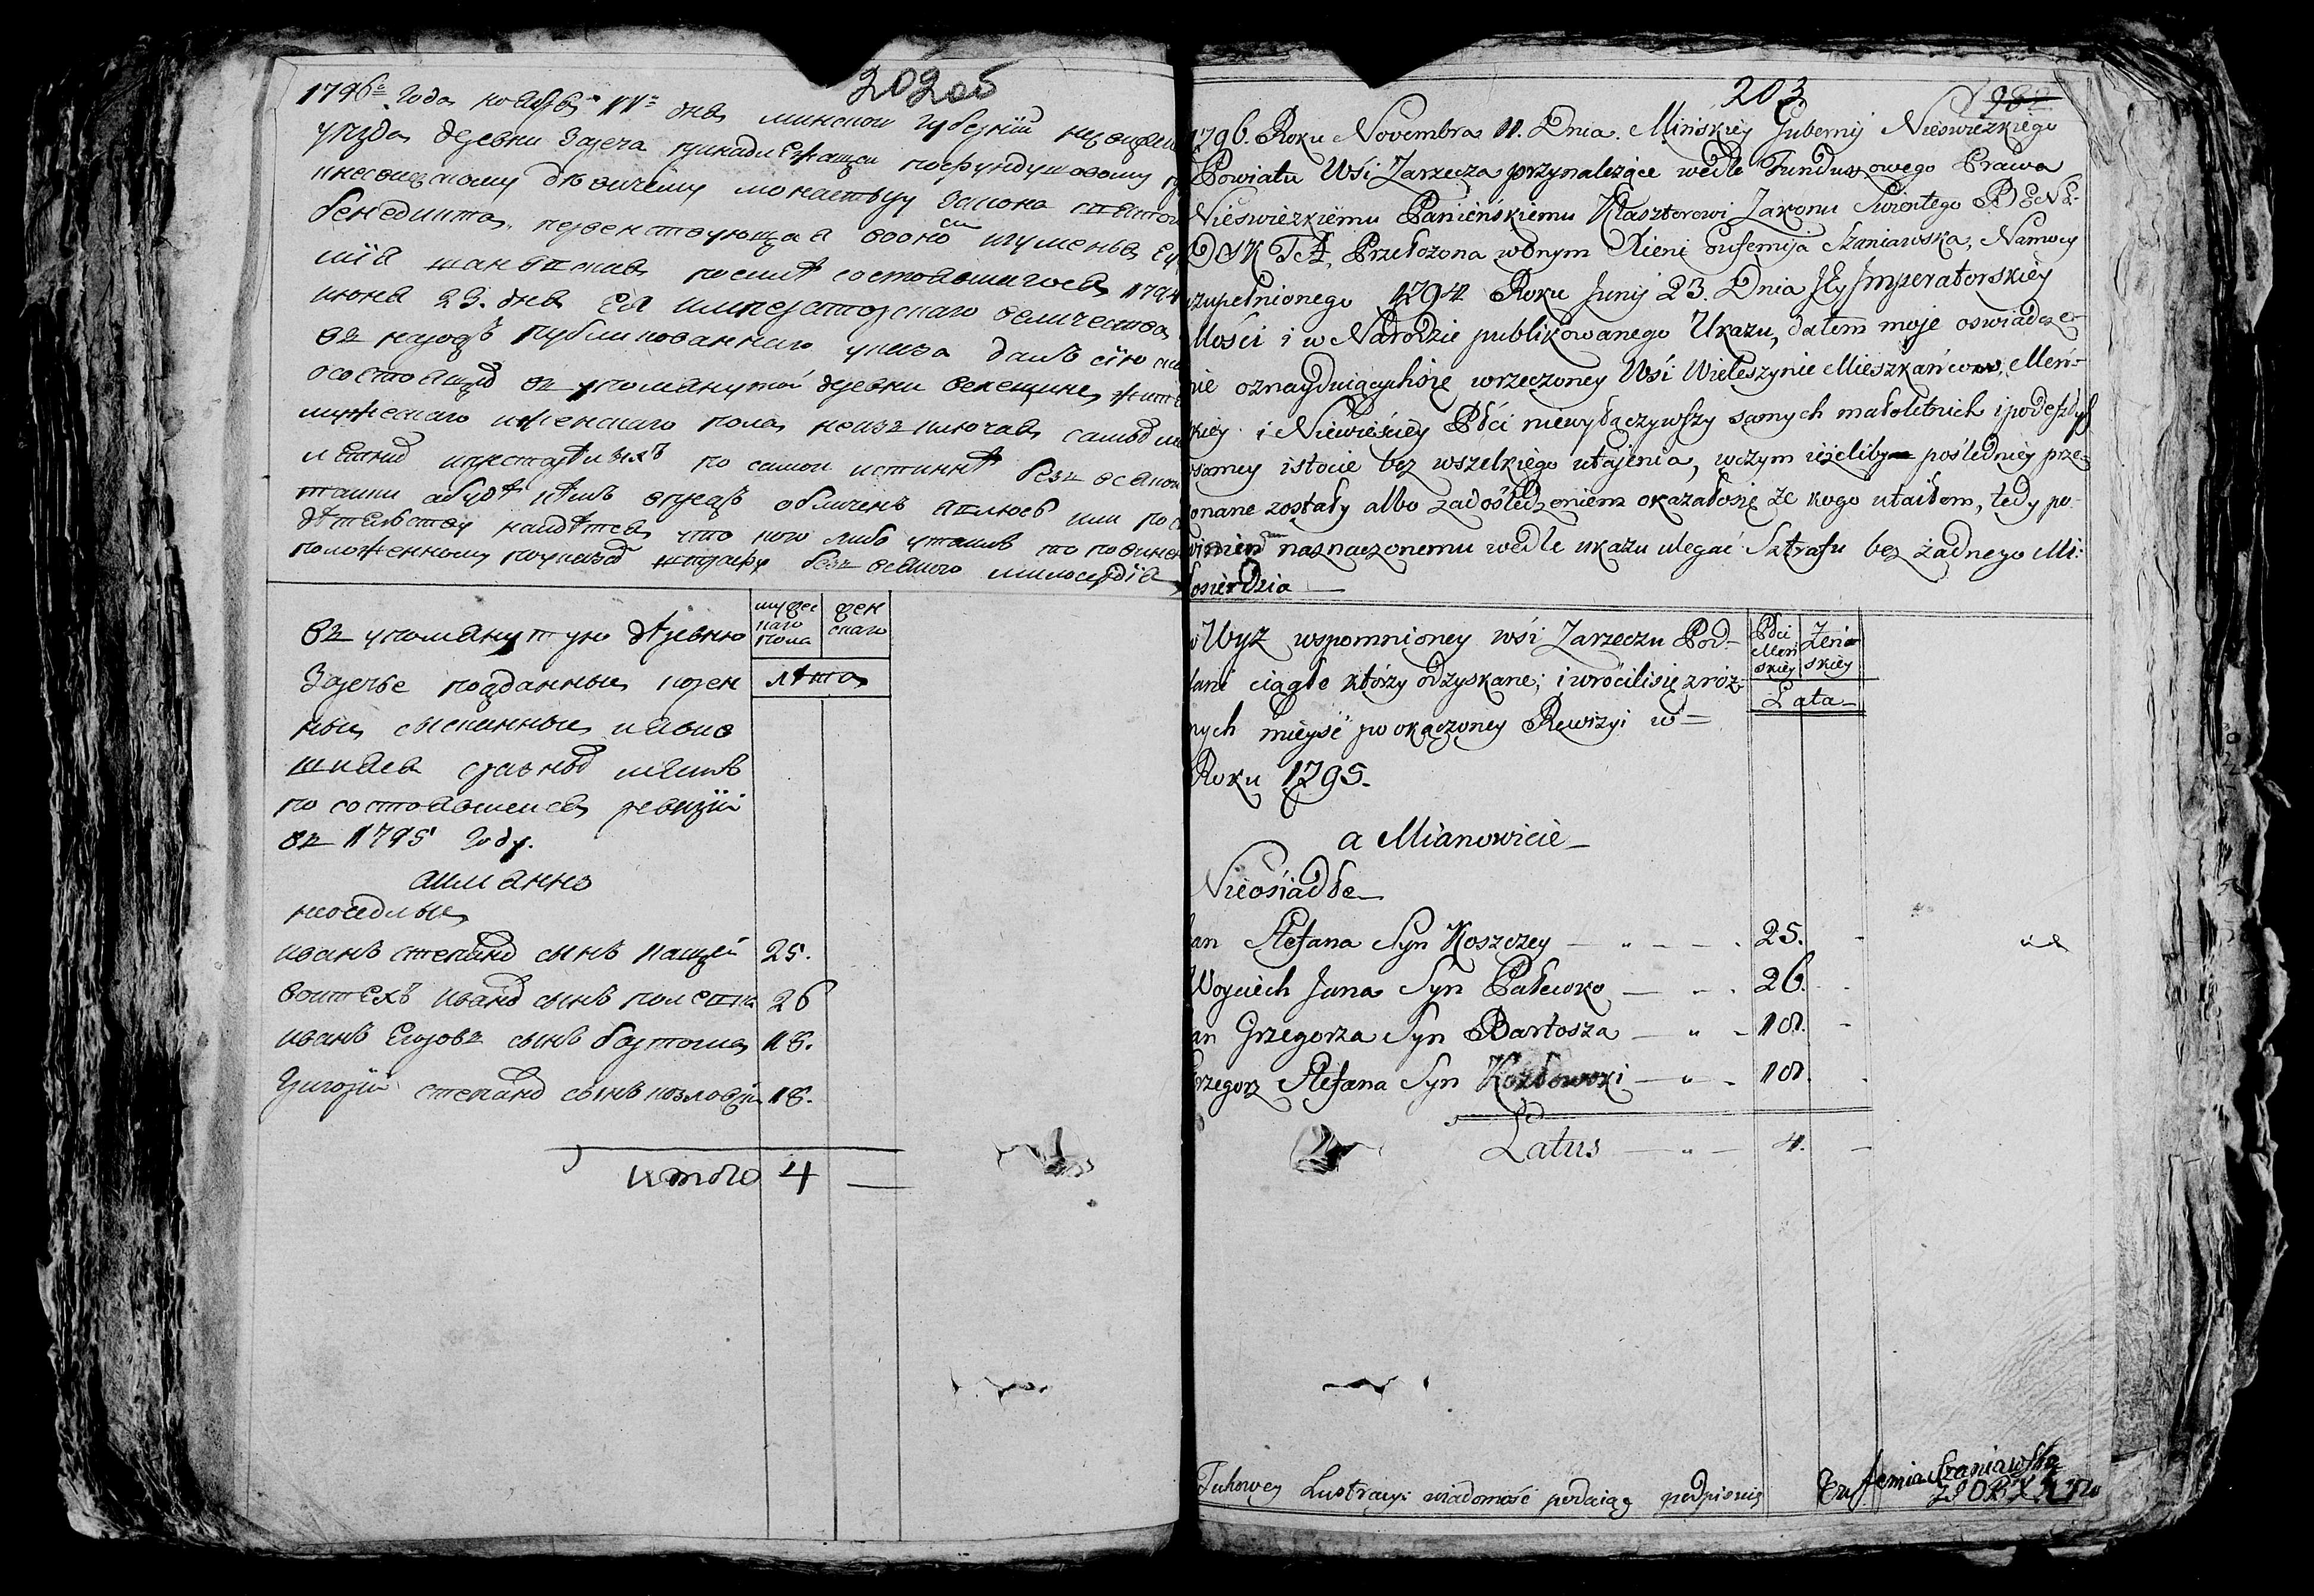 202об
1796го года ноября 11го дня минской губернїи несвиж
уезда деревни Заречa принадлежащеи пофундушовому
кнесвижскому девичему монастыру Закона святого
бенедикта, первенствующая вооной игуменья
мїя шанявская посиле состоявшагося 1794
июня 23. дня Ея императорскаго величества
въ народъ публикованнаго указа далъ сїю
осостоящихъ въ упомянутой деревни велешине
мужескаго иженскаго пола неизъключая самыхъ
летнихъ ипрестарелыхъ по самои истинне безъ всякои
таики абуде чемъ впредь обличенъ явлюсь или по
детельству найдется что кого либо утаилъ то повинен
положенному поуказу штрафу безъ всякого милосердїя
въ упомянутую деревню
Заречье подданные корен
ные сысканные иявив
шияся сразныхъ местъ
по состоявшеися ревизїи
въ 1795 году.
аимянно
неоседлые
мужес
каго
пола
жен
скаго
лета
иванъ степановъ сынъ кащей 25.
воитехъ ивановъ сынъ 26
иванъ Егоровъ сынъ бартоша 18.
Григорїй степановъ сынъ козловскїй 18.
итого 4 —
203
1796. Roku Novembra 11. Dnia. Mińskiey Gubernij Nieswiezkiego
Powiatu Wśi Zarzecza przynalezące wedle Funduszowego Prawa
Nieswiezkiemu Panieńskiemu Klasztorowi Zakonu Swientego BENE-
DYKTA, Przełożona wonym Xieni Eufemija Szaniawska, Namocy
uzupełnionego 1794 Roku Junij 23. Dnia Jey Imperatorskiey
Mości i w Narodzie publikowanego Ukazu, dałem moje oswiadcze-
nie oznayduiącychsię wrzeczoney Wśi Wieleszynie Mieszkańcow, Meń-
skiey i Niewieściey Płći niewyłączywszy samych małoletnich ipodeszłych
samey istocie bez wszelkiego utajenia, wczym ieżeliby posledniey prze-
konane zostały albo zadośledzeniem okazałosię że kogo utaiłem, tedy po-
winien naznaczonemu wedle ukazu ulegać Sztrafu bez żadnego Mi-
łosierdzia —
w Wyż wspomnioney wśi Zarzeczu Pod-
dani ciągłe którzy odzyskane; iwrócilisię zróż-
nych mieysć po okączoney Rewizyi w —
Roku 1795.
a Mianowicie —
Nieosiadłe —
Płci
Meń
skiey
Żeń
skiey
Lata —
Jan Stefana Syn Koszczey — 25.
Woyciech Jana Syn Pałewko — 26.
Jan Grzegorza Syn Bartosza — 18.
Grzegorz Stefana Syn Kozłowski — 18.
Latus — 4. —
Takowey Lustracyi wiadomość podaiąc podpisuię
Eufemia Szaniawska